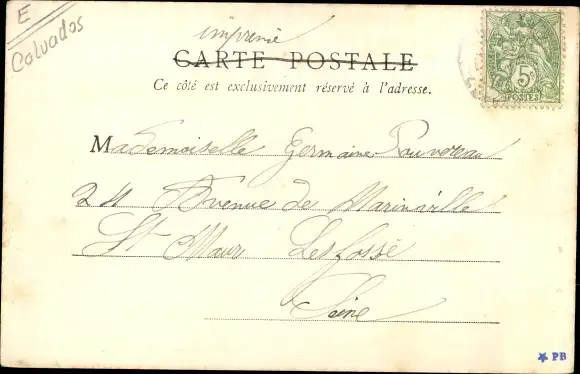 E
Calvados
imprimé
CARTE POSTALE
Ce côté est exclusivement réservé à l'adresse.
Mademoiselle Germaine
24 Avenue de Marinville
St Maur Les fossé
Seine
5c
POSTES
PB